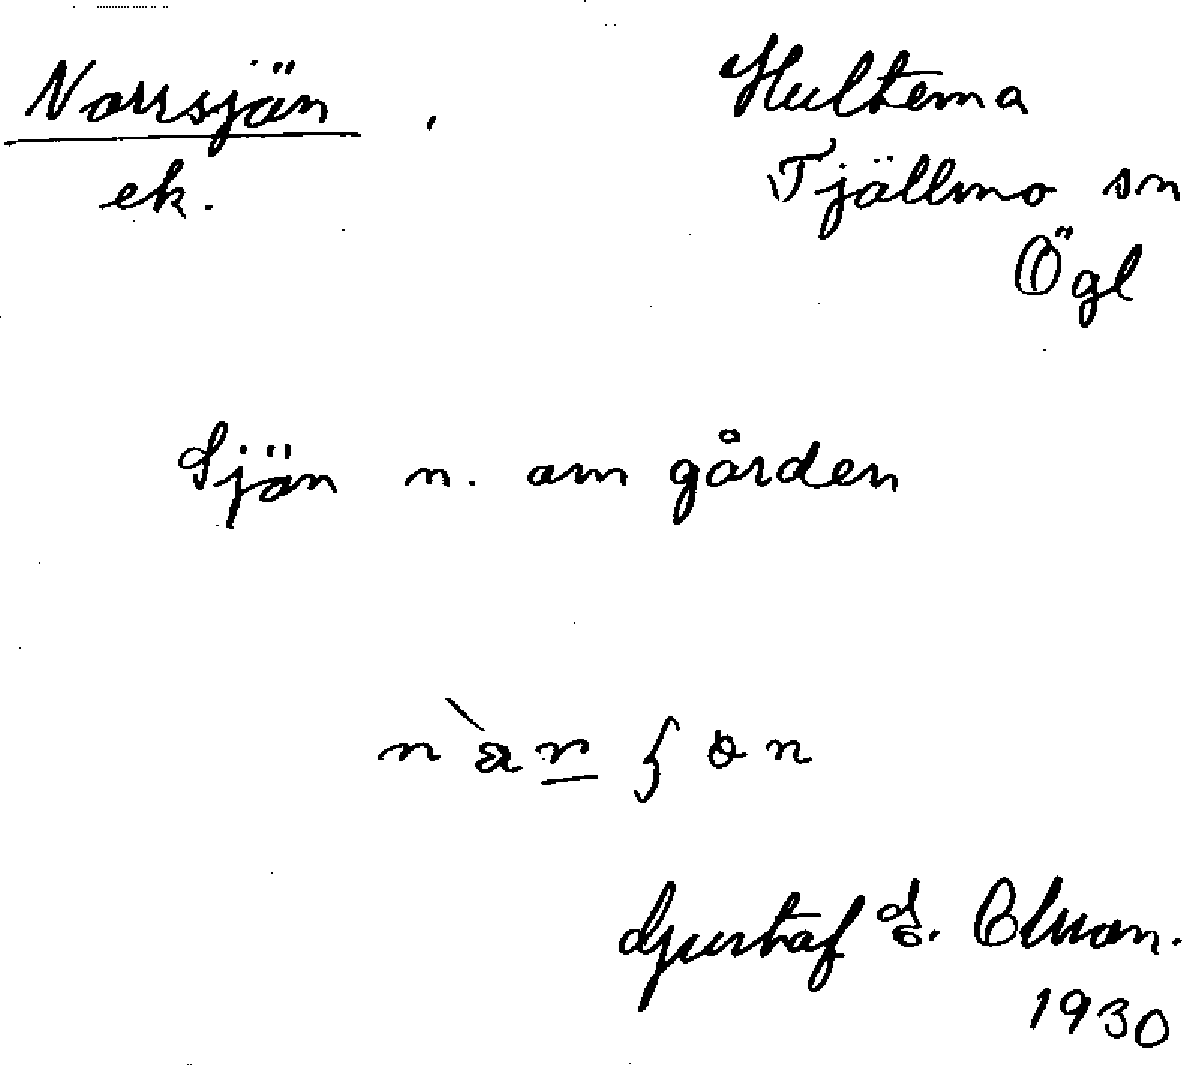 Norrsjön Hultema
ek. Tjällmo sn
Ögl
Sjön n. om gården
Gustaf
1930